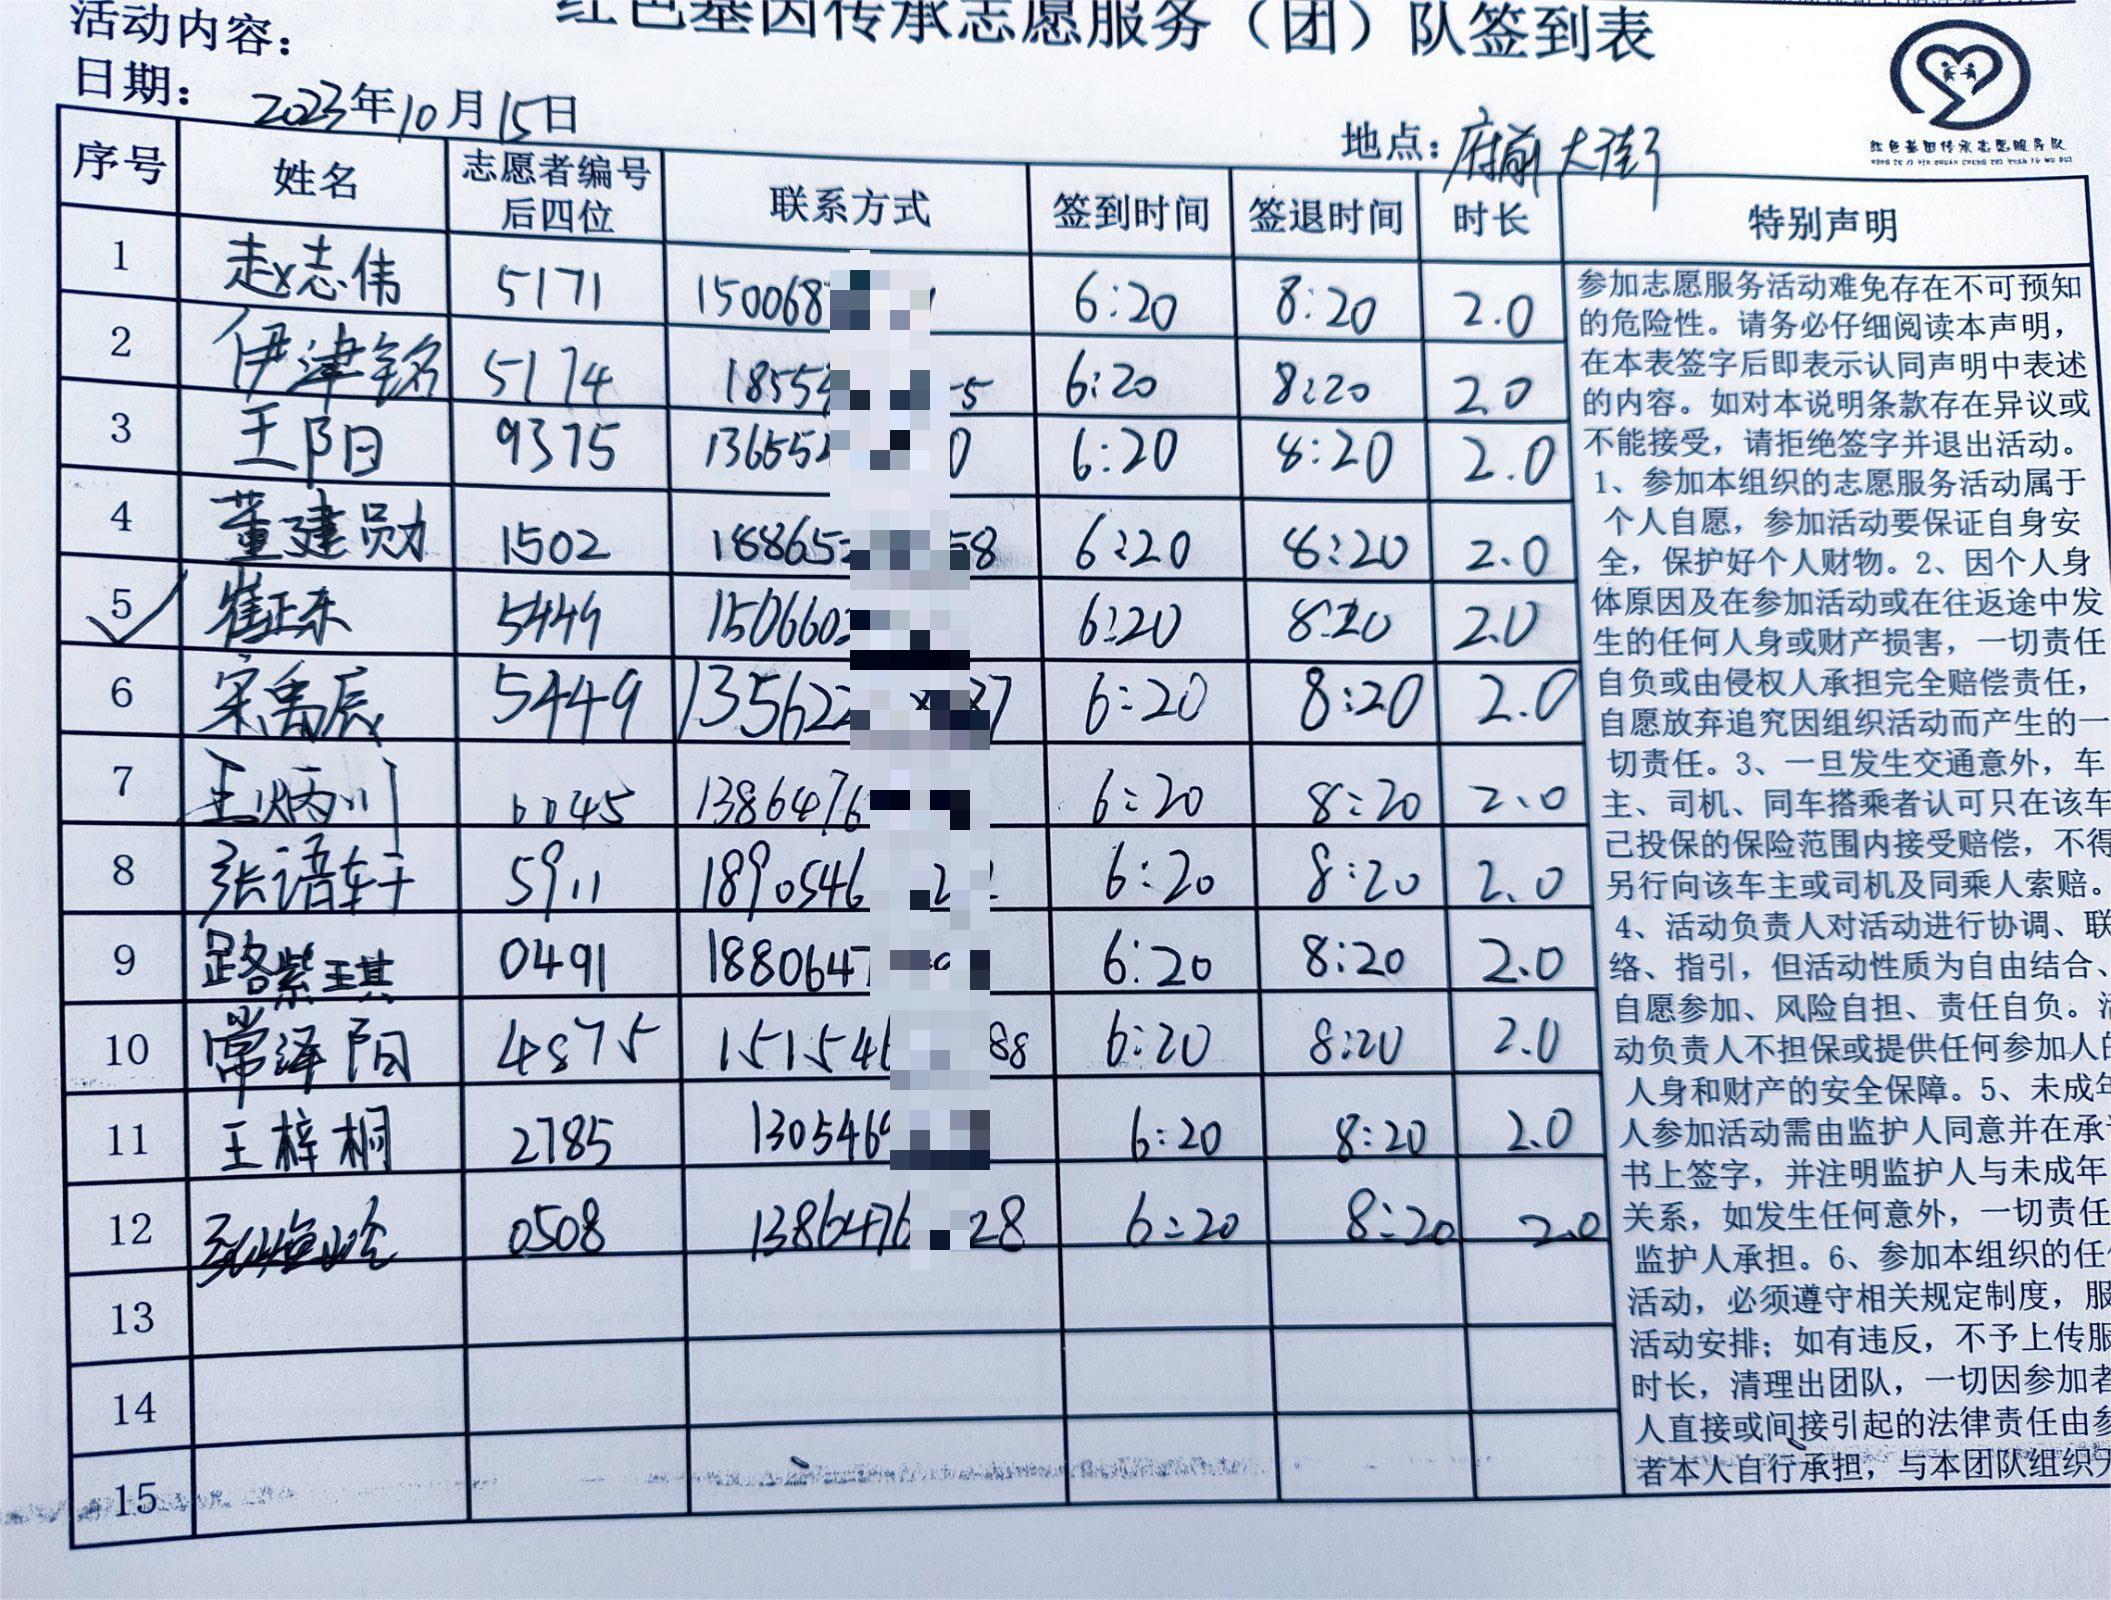 红色基因传承志愿服务（团）队签到表
活动内容：
日期： 2023年10月15日
地点：府前大街
红色基因传承志愿服务队
序号 姓名 志愿者编号后四位 联系方式 签到时间 签退时间 时长 特别声明
1 赵志伟 5171 150068 6:20 8:20 2.0
2 伊津铭 5174 1855 5 6:20 8:20 2.0
3 王阳 9375 136552 0 6:20 8:20 2.0
4 董建勋 1502 188652 58 6:20 8:20 2.0
5 崔正东 5449 1506602 6:20 8:20 2.0
6 宋禹辰 5449 135622 37 6:20 8:20 2.0
7 王炳川 0045 1386476 6:20 8:20 2.0
8 张语轩 5911 1890546 2 6:20 8:20 2.0
9 路紫琪 0491 1880647 6:20 8:20 2.0
10 常泽阳 4875 151546 88 6:20 8:20 2.0
11 王梓桐 2785 130546 6:20 8:20 2.0
12 0508 1386476 28 6:20 8:20 2.0
13
14
15
参加志愿服务活动难免存在不可预知
的危险性。请务必仔细阅读本声明，
在本表签字后即表示认同声明中表述
的内容。如对本说明条款存在异议或
不能接受，请拒绝签字并退出活动。
1、参加本组织的志愿服务活动属于
个人自愿，参加活动要保证自身安
全，保护好个人财物。2、因个人身
体原因及在参加活动或在往返途中发
生的任何人身或财产损害，一切责任
自负或由侵权人承担完全赔偿责任，
自愿放弃追究因组织活动而产生的一
切责任。3、一旦发生交通意外，车
主、司机、同车搭乘者认可只在该车
已投保的保险范围内接受赔偿，不得
另行向该车主或司机及同乘人索赔。
4、活动负责人对活动进行协调、联
络、指引，但活动性质为自由结合、
自愿参加、风险自担、责任自负。活
动负责人不担保或提供任何参加人的
人身和财产的安全保障。5、未成年
人参加活动需由监护人同意并在承诺
书上签字，并注明监护人与未成年
关系，如发生任何意外，一切责任
监护人承担。6、参加本组织的任何
活动，必须遵守相关规定制度，服
活动安排；如有违反，不予上传服
时长，清理出团队，一切因参加者
人直接或间接引起的法律责任由参
者本人自行承担，与本团队组织无